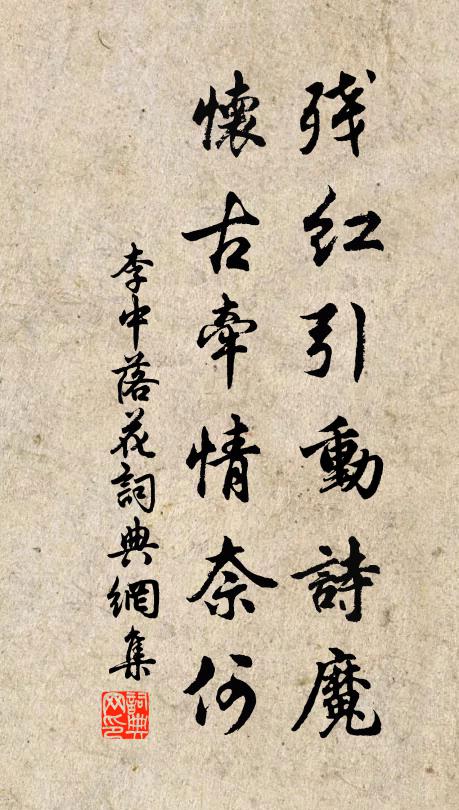 残红引動詩魔
懷古牽情奈何
李中落花詞典網集
詞典
网印